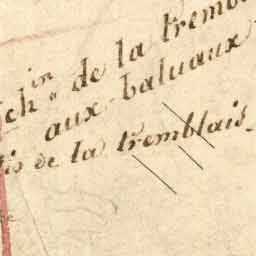 chin de la trembl
aux baluaux
tis de la tremblais